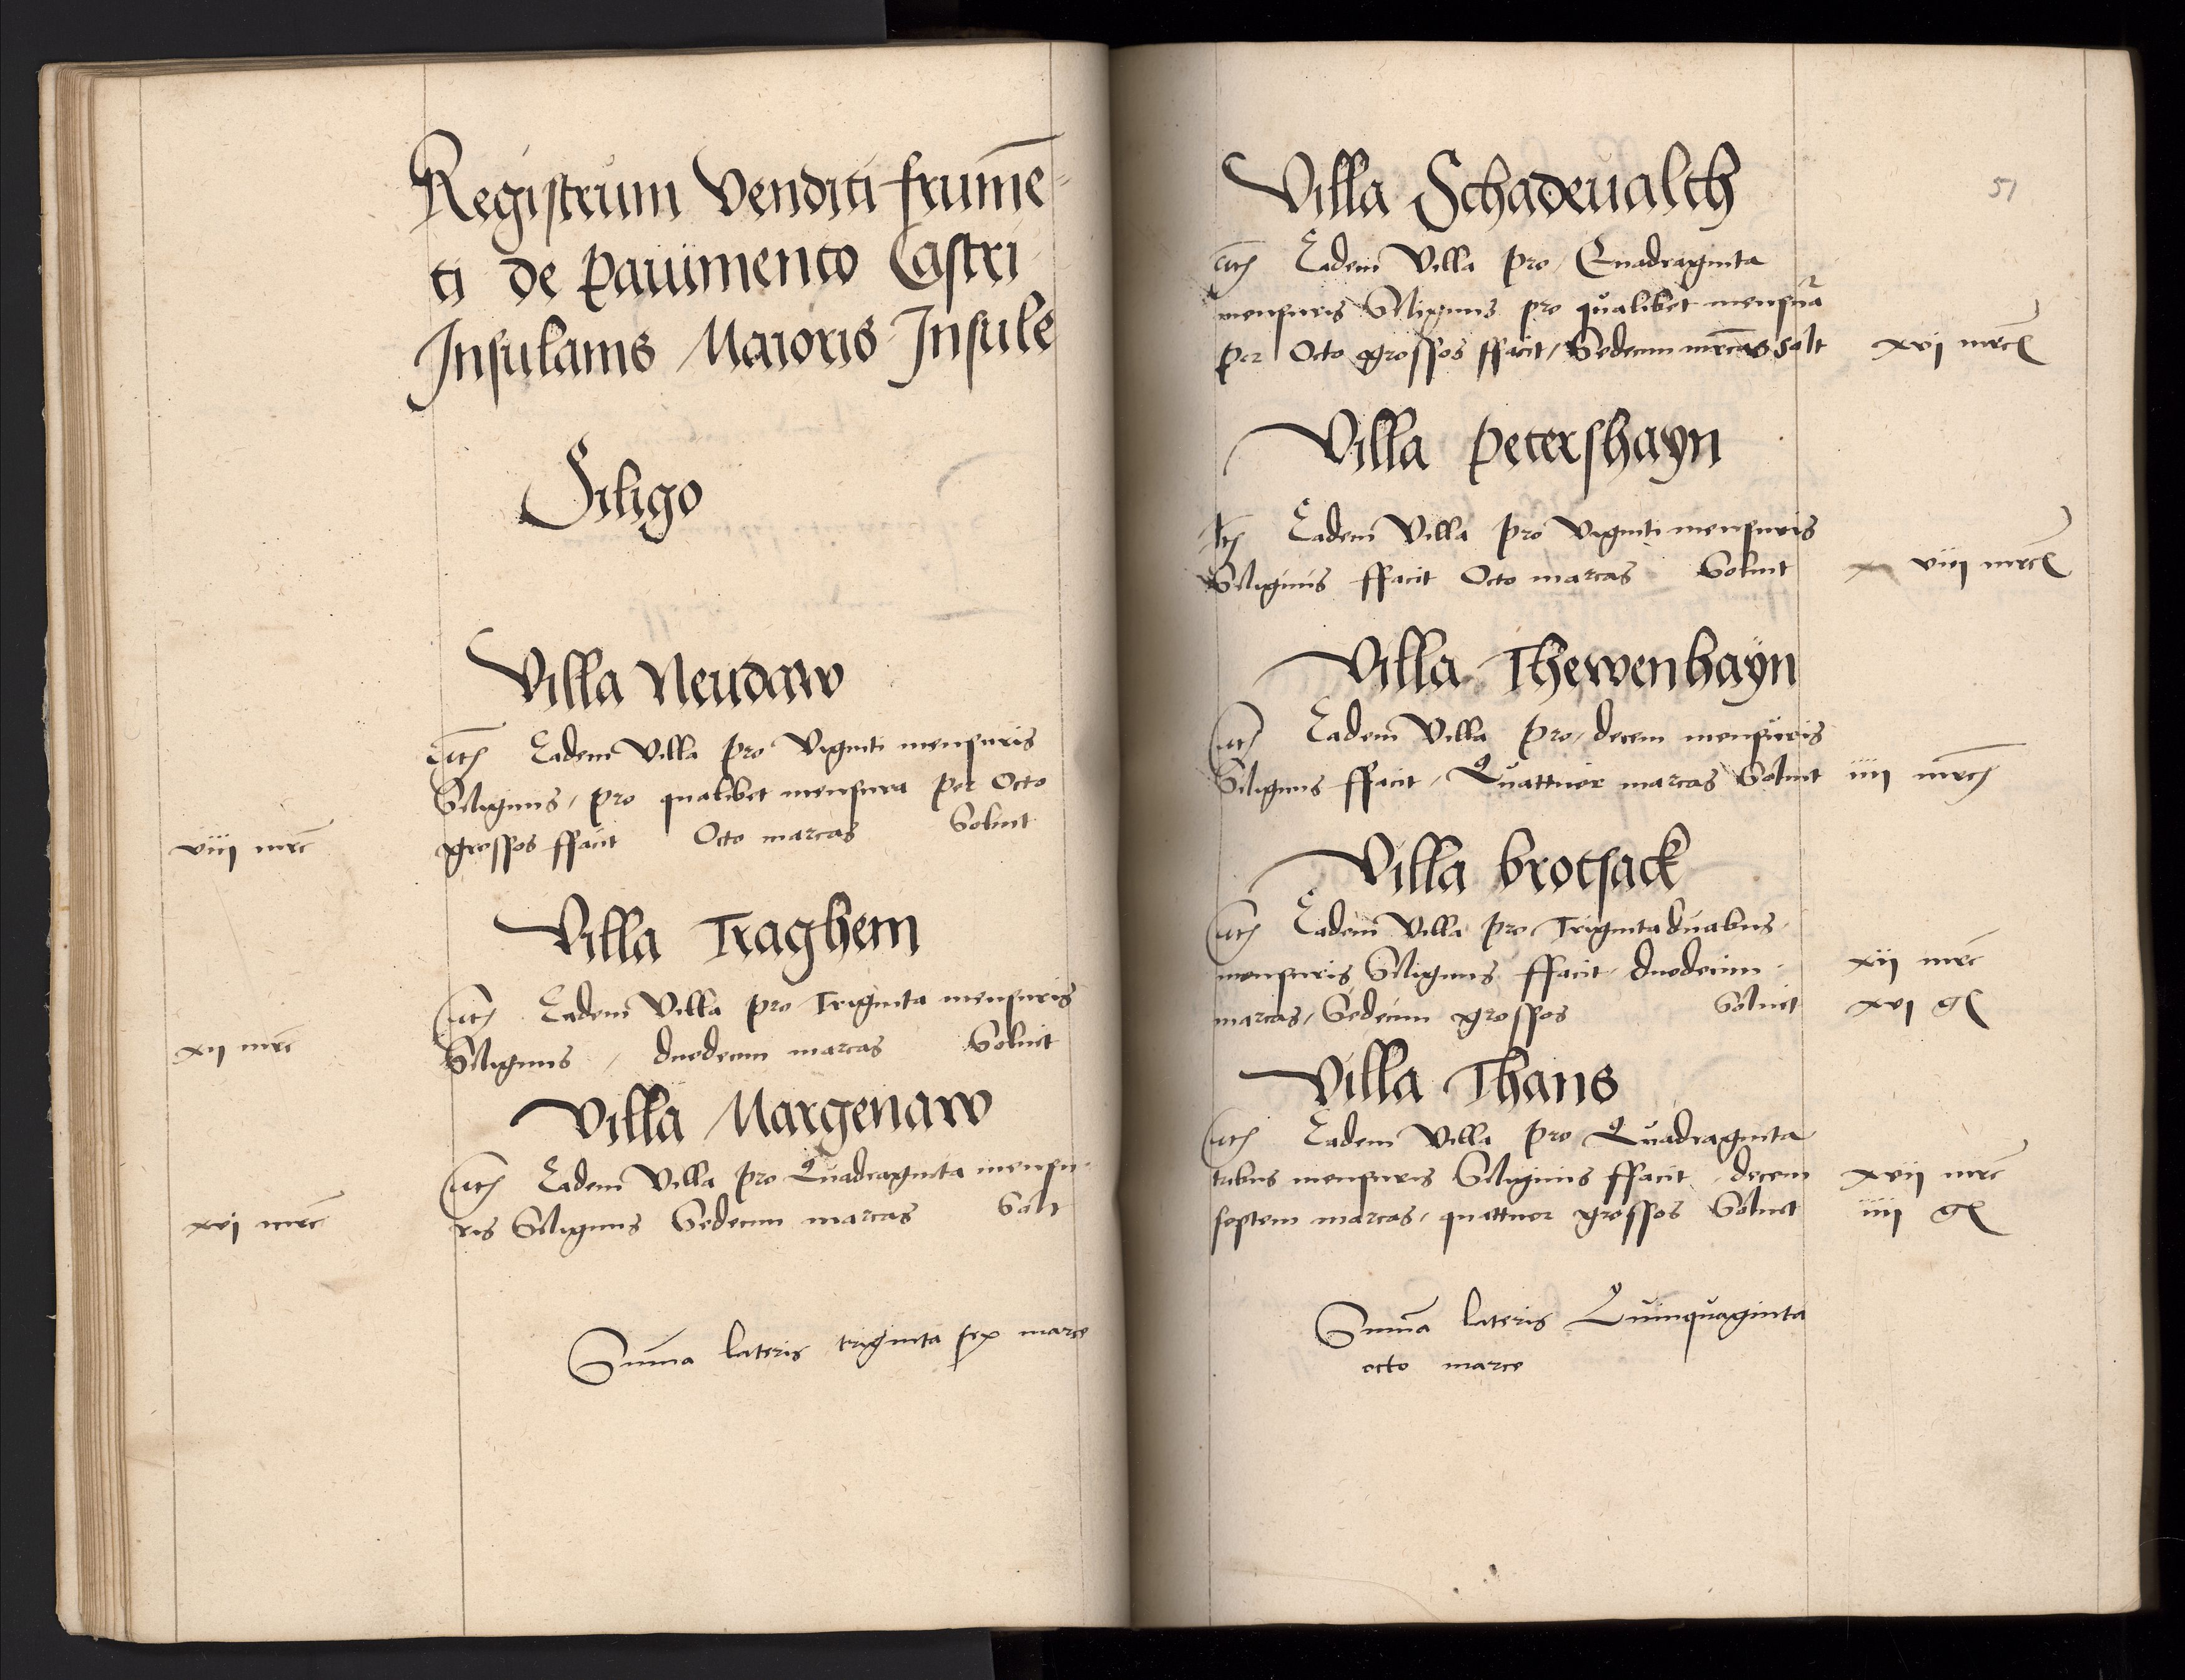 Registrum Venditi frume-
ti de Pauimento Castri
Insulanis Maioris Insule
Siligo
Villa Neudaw
Eadem Villa pro Viginti mensuris
Siliginis, pro qualibet mensura per Octo
viij mrc grossos ffacit Octo marcas Soluit
Villa Traghem
Eadem Villa pro Triginta mensuris
xij mrc Siliginis, duodecim marcas Soluit
Villa Margenaw
Eadem Villa pro Quadraginta mensu-
xvj mrc ris Siliginis Sedecim marcas Solt
Summa lateris triginta sex marce
51
Villa Schadeualth
Eadem Villa pro Quadraginta
mensuris Siliginis pro qualibet mensura
per Octo grossos ffacit, Sedecim mrcas Solt xvj mrc
Villa Petershayn
Eadem Villa pro Viginti mensuris
Siliginis ffacit Octo marcas Soluit viij mrc
Villa Thewenhayn
Eadem Villa pro, decem mensuris
Siliginis ffacit, Quattuor marcas Soluit iiij mrc
Villa brotsack
Eadem Villa pro Triginta duabus
mensuris Siliginis ffacit duodecim xij mrc
marcas, Sedecim grossos Soluit xvj g
Villa Thans
Eadem Villa pro Quadraginta
tribus mensuris Siliginis ffacit decem xvij mrc
septem marcas, quattuor grossos Soluit iiij g
Summa lateris Quinquaginta
octo marce